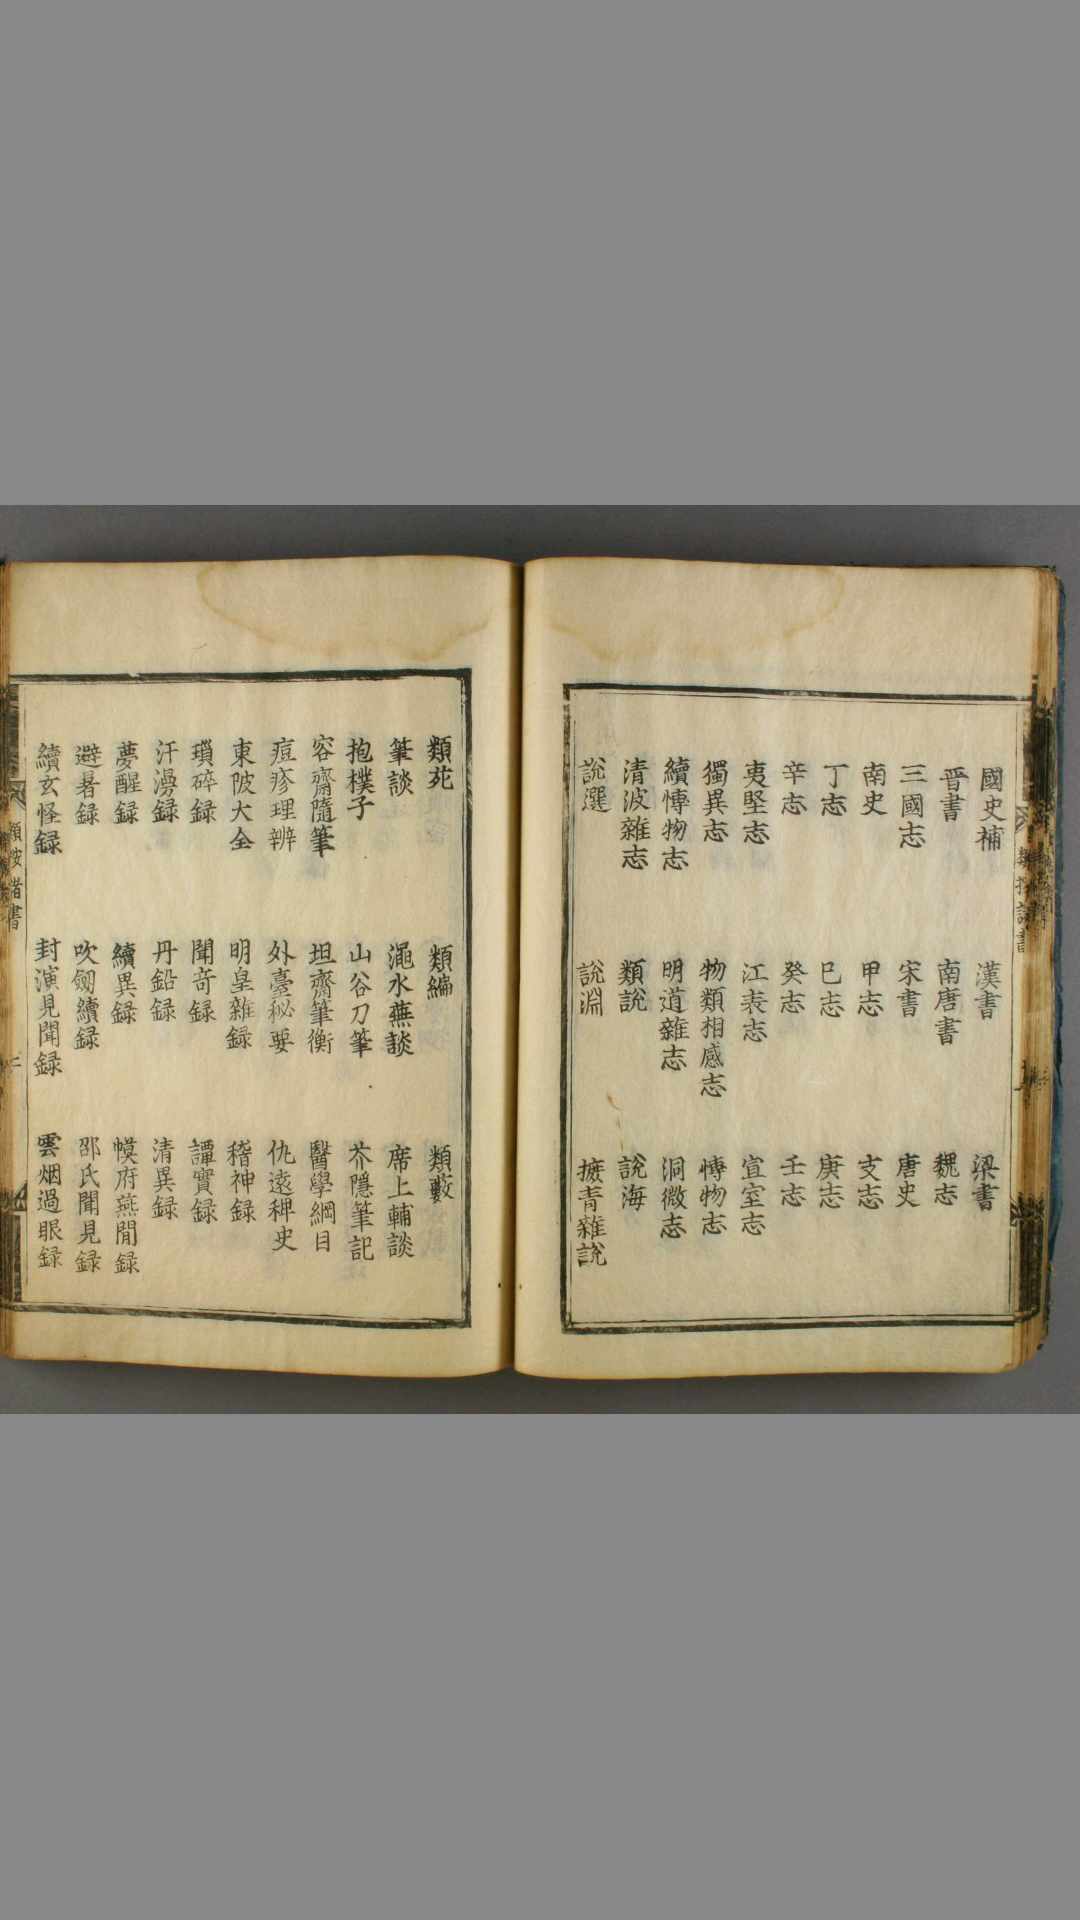 國史補 漢書 梁書
晋書 南唐書 魏志
三國志 宋書 唐史
南史 甲志 支志
丁志 巳志 庚志
辛志 癸志 壬志
夷堅志 江表志 宣室志
獨異志 物類相感志 慱物志
續慱物志 明道雜志 洞微志
清波雜志 類說 說海
說選 說淵 摭青雜說
類苑 類編 類藪
筆談 澠水燕談 席上輔談
抱樸子 山谷刀筆 芥隱筆記
容齋隨筆 坦齋筆衡 醫學綱目
痘疹理辨 外臺秘要 仇遠稗史
東陂大全 明皇雜録 稽神録
瑣碎録 聞奇録 譚賓録
汗漫録 丹鉛録 清異録
夢醒録 續異録 幙府燕閒録
避暑録 吹劒續録 邵氏聞見録
續玄怪録 封演見聞録 雲烟過眼録